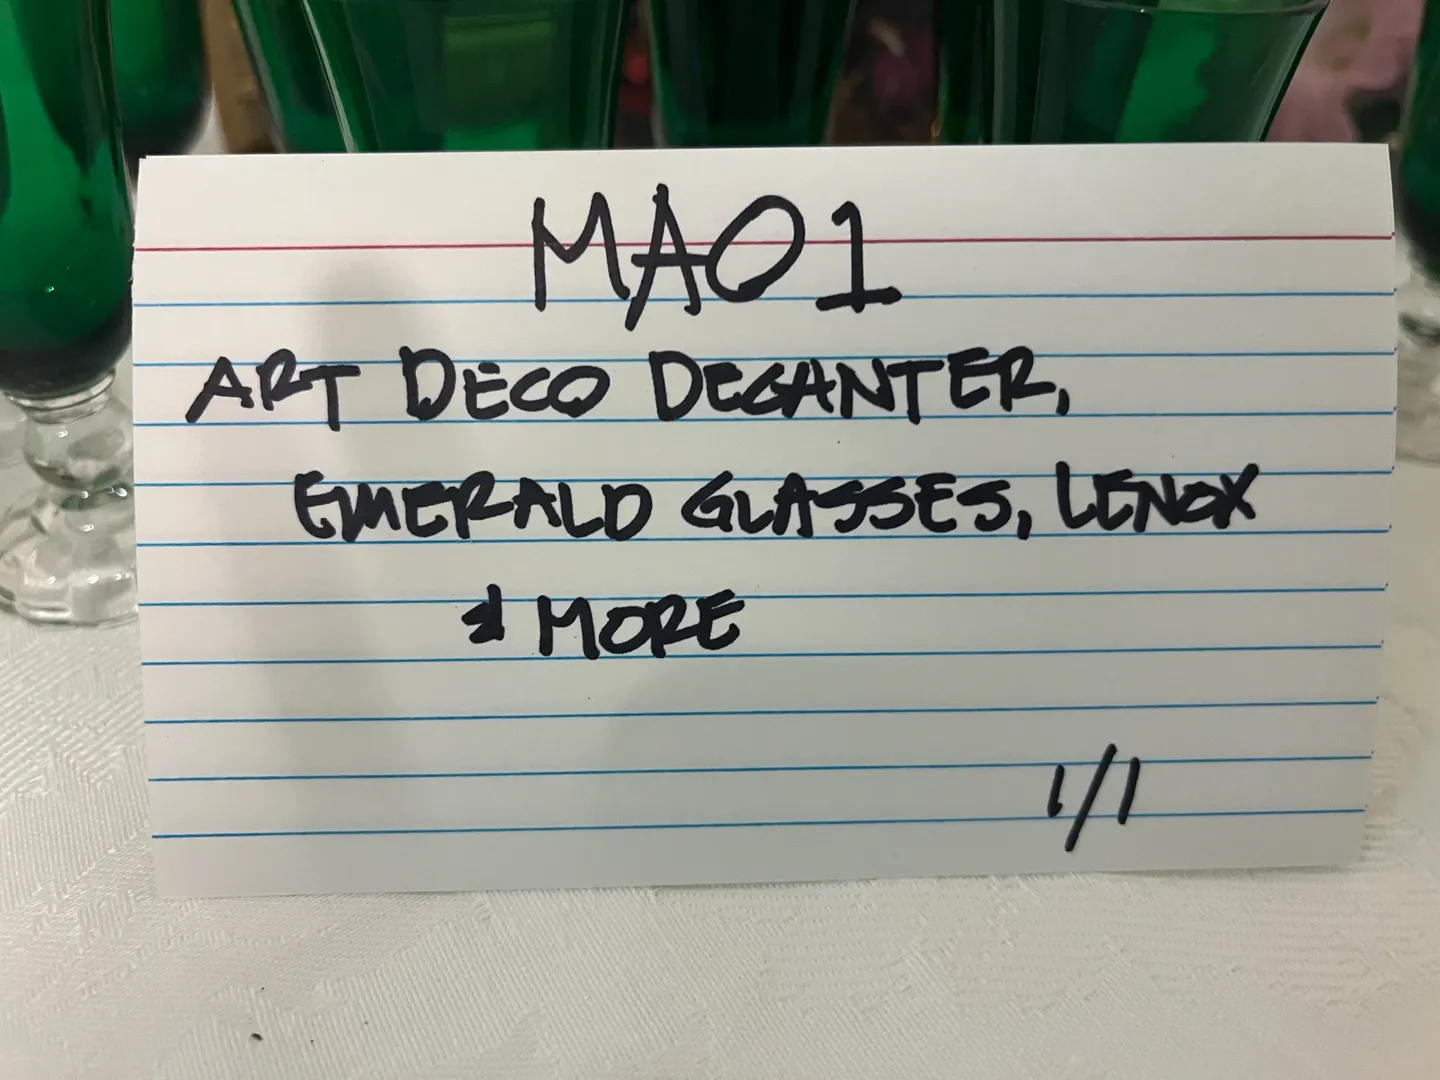 MA01
ART DECO DECANTER,
EMERALD GLASSES, LENOX
& MORE
1/1